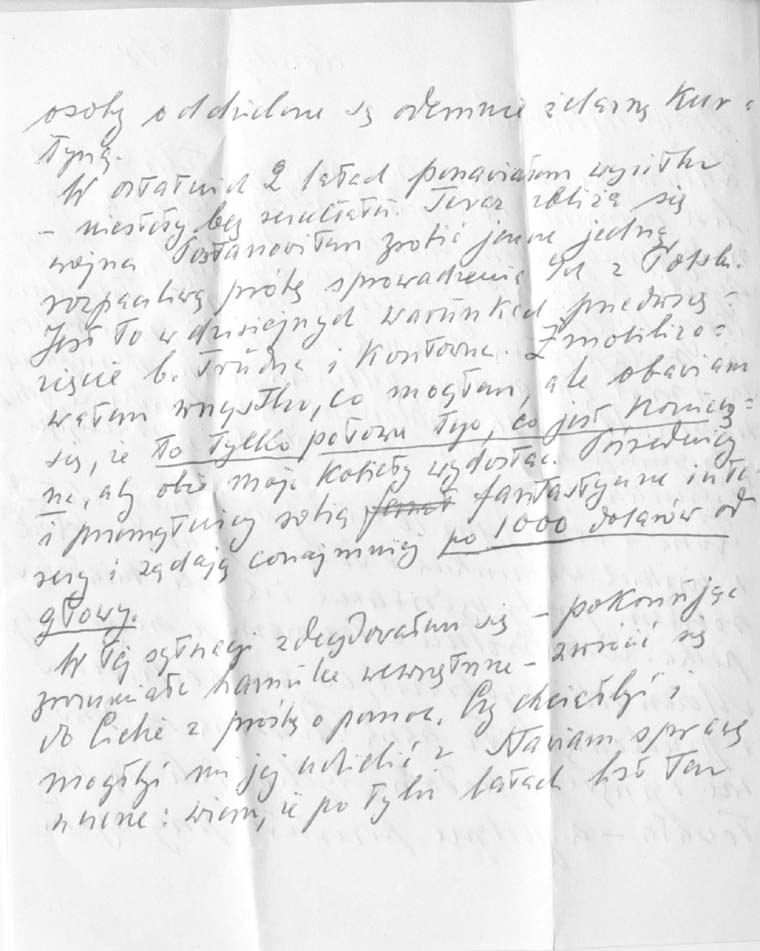 osoby oddzielone są odemnie żelazną Kur-
tyną.
W ostatnich 2 latach ponawiałam wysiłki
- niestety bez rezultatu. Teraz zbliża się
wojna Postanowiłam zrobić jeszcze jedną
rozpaczliwą próbę sprowadzenia Ich z Polski.
Jest to w dzisiejszych warunkach przedwzię=
zięcie b. trudne i Kosztowne. Zmobilizo=
wałam wszystko, co mogłam, ale obawiam
się, że to tylko połowa tego, co jest Koniecz=
ne, aby obie moje Kobiety wydostać. Pośrednicy
i przemytnicy robią fant fantastyczne inte
resy i żądają conajmniej po 1000 dolarów od
głowy.
W tej sytuacji zdecydowałam się - pokonując
zrozumiałe hamulce wewnętrzne - zwrócić się
do Ciebie z prośbą o pomoc. Czy chciałbyś i
mógłbyś mi jej udzielić? Stawiam sprawę
: wiem, że po tylu latach